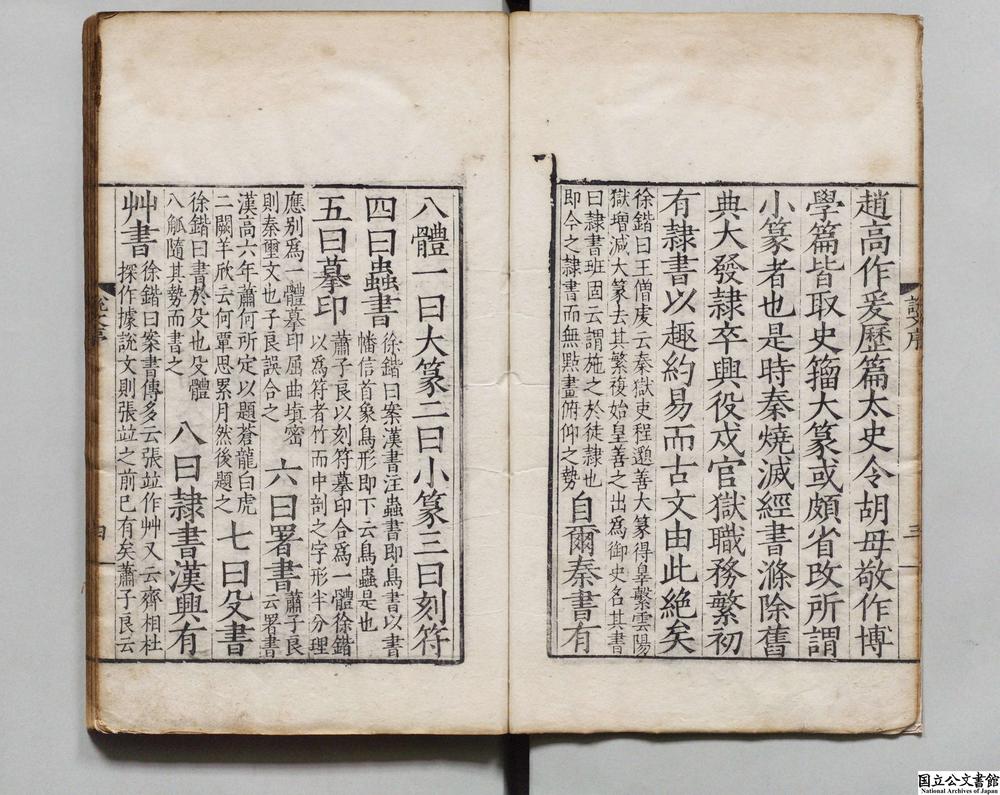 趙高作爰歷篇太史令胡母敬作博
學篇皆取史籒大篆或頗省改所謂
小篆者也是時秦燒滅經書滌除舊
典大發隷卒興役戍官獄職務繁初
有隷書以趣約易而古文由此絶矣
徐鍇曰王僧虔云秦獄吏程邈善大篆得辠繫雲陽
獄增減大篆去其繁複始皇善之出爲御史名其書
曰隷書班固云謂施之於徒隷也
即今之隷書而無點畫俯仰之勢
自爾秦書有
說文序
三
八體一曰大篆二曰小篆三曰刻符
四曰蟲書
徐鍇曰案漢書注蟲書即鳥書以書
幡信首象鳥形即下云鳥蟲是也
五曰摹印
蕭子良以刻符摹印合爲一體徐鍇
以爲符者竹而中剖之字形半分理
應别爲一體摹印屈曲塡密
則秦璽文也子良誤合之
六曰署書
蕭子良
云署書
漢高六年蕭何所定以題蒼龍白虎
二闕羊欣云何覃思累月然後題之
七曰殳書
徐鍇曰書於殳也殳體
八觚隨其勢而書之
八曰隷書漢興有
艸書
徐鍇曰案書傳多云張竝作艸又云齊相杜
探作據說文則張竝之前已有矣蕭子良云
說文序
四
国立公文書館
National Archives of Japan